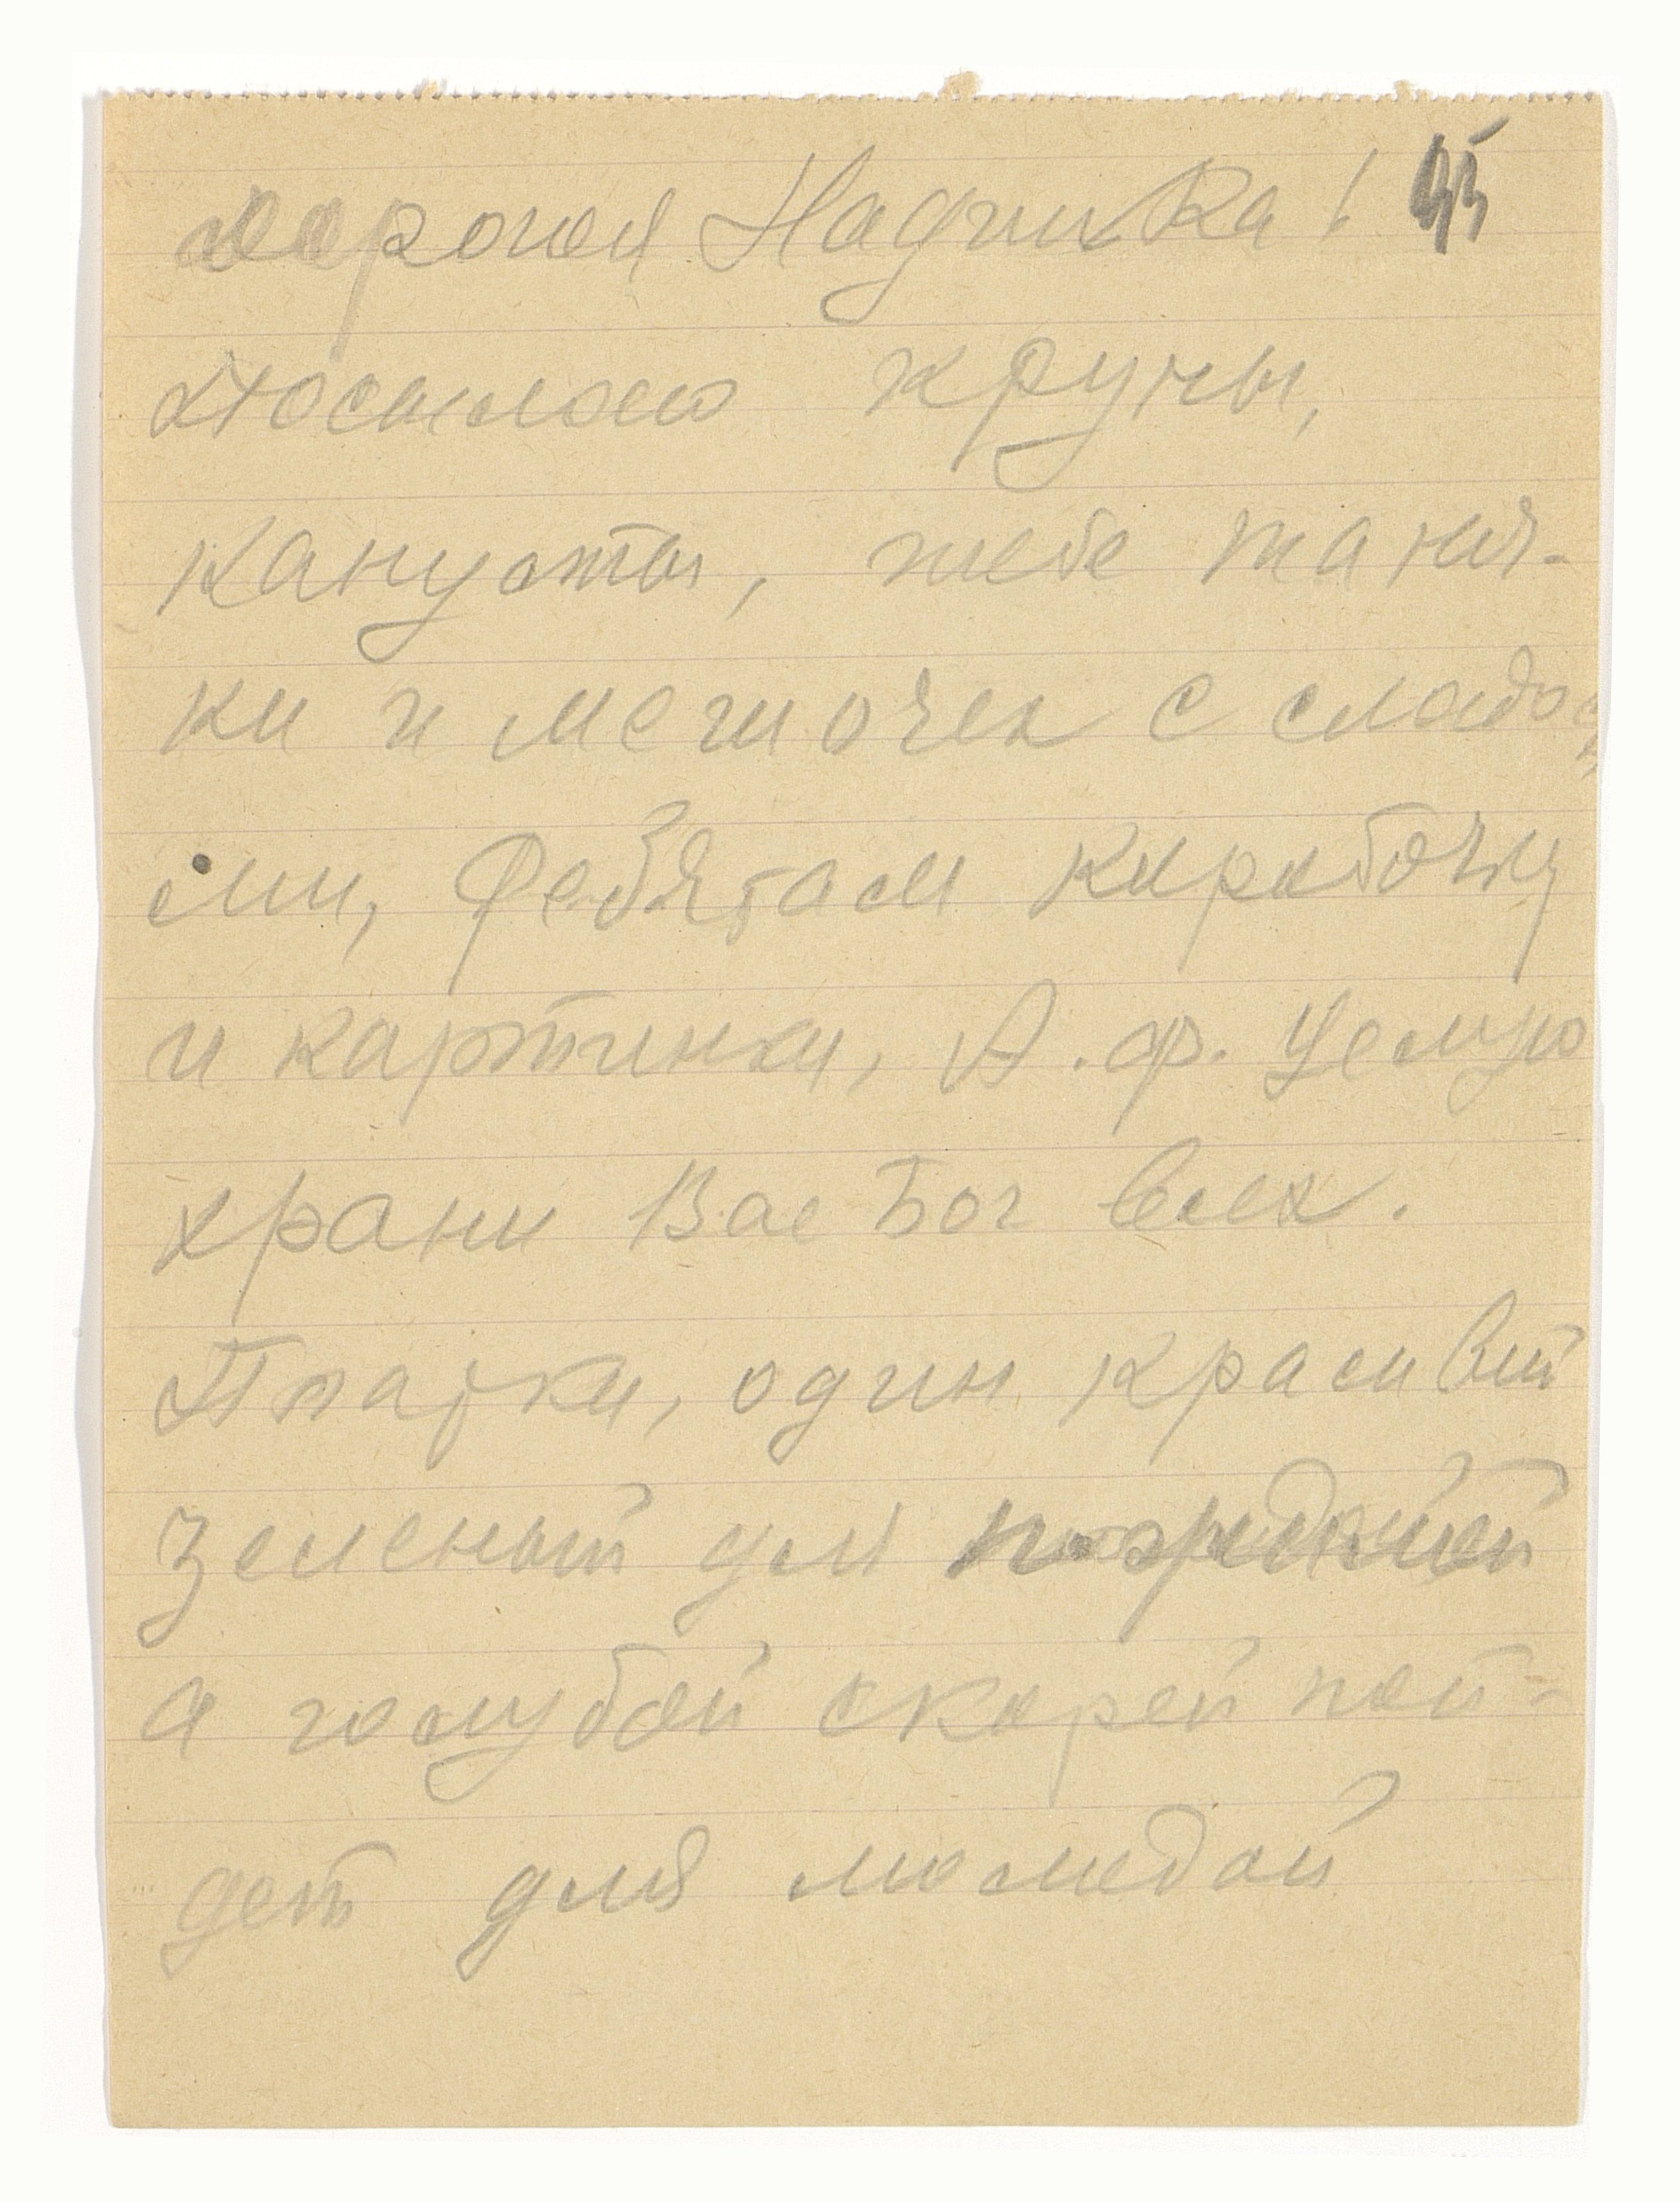 дорогая Надичка! 45
Посылаю крупы,
капусты, тебе тапоч-
ки и мешочек с сладос
ями, Ребятам коробочку
и картинки, А. Ф. Целую
храни Вас Бог всех.
Платки, один красивый
зеленый для
а голубой скорей пой-
дет для молодой